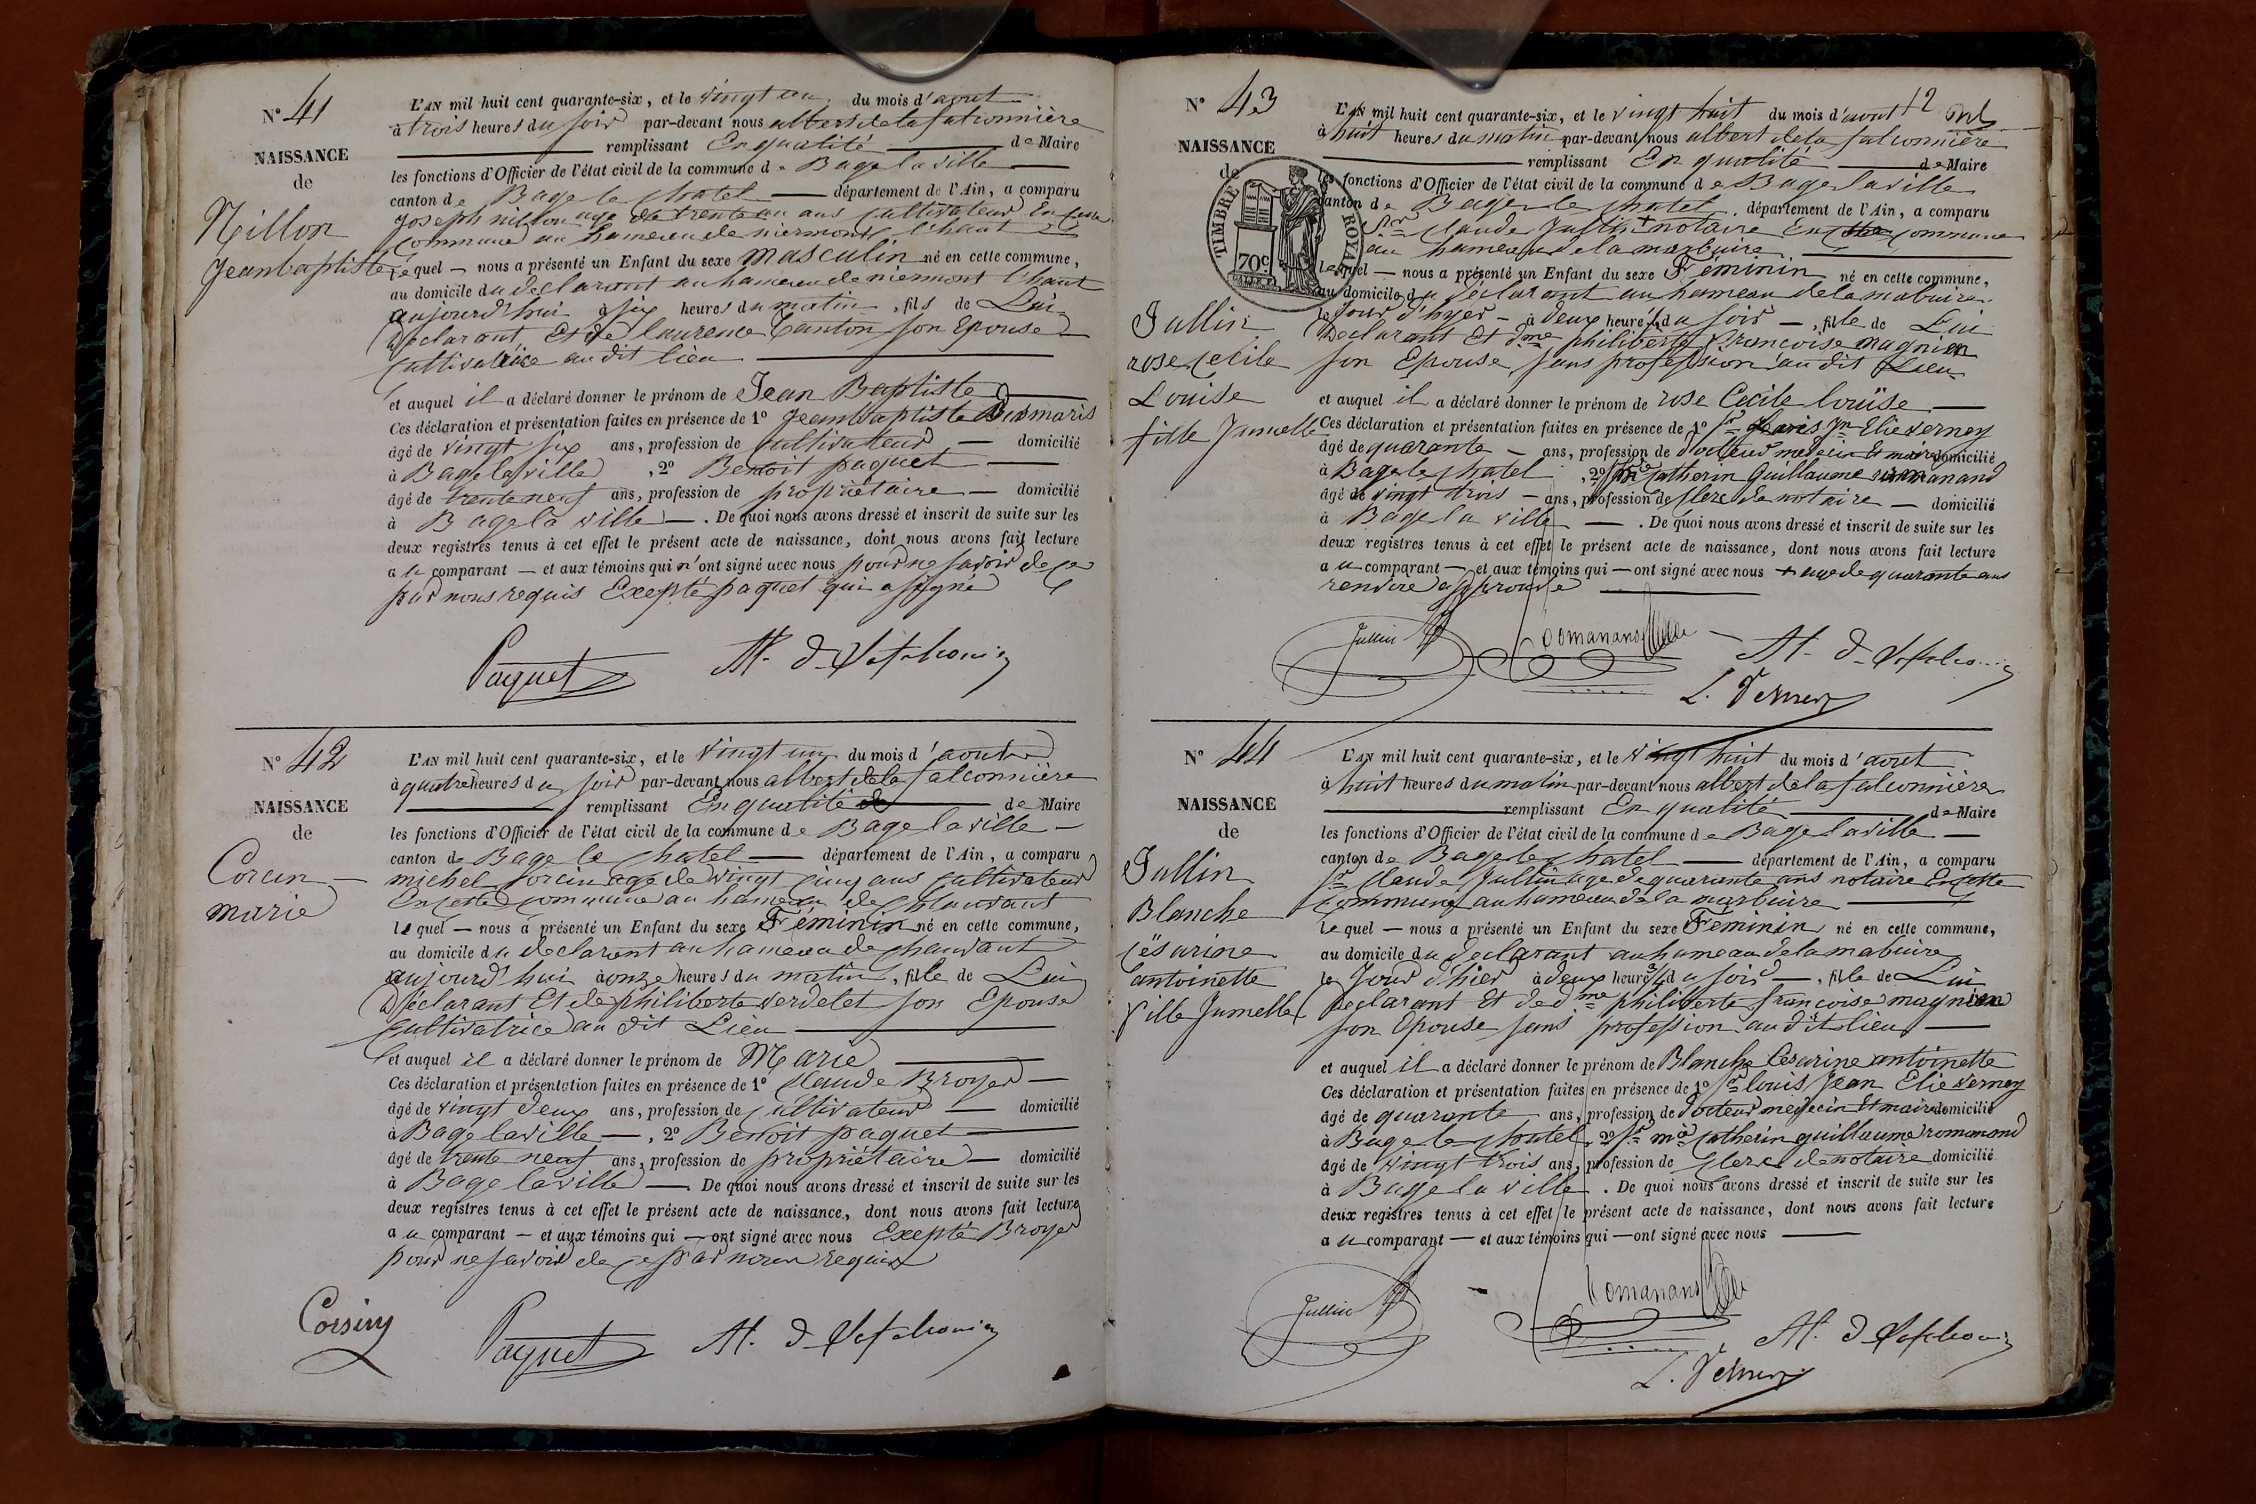 N° 41
NAISSANCE
de
Nillon
Jeanbaptiste
L'AN mil huit cent quarante-six, et le vingt un du mois d'aout
à trois heures du soir par-devant nous albert de la falconnière
remplissant En qualité de Maire
les fonctions d'Officier de l'état civil de la commune de Bage la ville
canton de Bage le chatel département de l'Ain, a comparu
joseph nillon age de trente un ans cultivateur En cette
commune au hameau de niermont l'haut
Lequel — nous a présenté un Enfant du sexe Masculin né en cette commune,
au domicile du declarant au hameau de niermont l'haut
aujourd'hui à six heures du matin, fils de Lui
Declarant Et de laurence Canton son Epouse
cultivatrice au dit lieu
et auquel il a déclaré donner le prénom de Jean Baptiste
Ces déclaration et présentation faites en présence de 1° jeanbaptiste Desmaris
âgé de vingt six ans, profession de cultivateur — domicilié
à Bage la ville, 2° Benoit paquet
âgé de trente neuf ans, profession de propriétaire — domicilié
à Bage la ville —. De quoi nous avons dressé et inscrit de suite sur les
deux registres tenus à cet effet le présent acte de naissance, dont nous avons fait lecture
au comparant — et aux témoins qui n'ont signé avec nous pour ne savoir de ce
par nous requis Exepté paquet qui a signé
Paquet
N° 42
NAISSANCE
de
Corcin
marie
L'AN mil huit cent quarante-six, et le vingt un du mois d'aout
à quatre heures du soir par-devant nous albert de la falconnière
remplissant En qualité de Maire
les fonctions d'Officier de l'état civil de la commune de Bage la ville
canton de Bage le chatel — département de l'Ain, a comparu
michel corcin age de vingt cinq ans cultivateur
En cette commune au hameau de chanvant
le quel — nous a présenté un Enfant du sexe Féminin né en cette commune,
au domicile du declarant au hameau de chanvant
aujourd'hui à onze heures du matin, fille de Lui
Déclarant Et de philiberte verdelet son Epouse
cultivatrice au dit Lieu
et auquel il a déclaré donner le prénom de Marie
Ces déclaration et présentation faites en présence de 1° Claude Broyer
âgé de vingt deux ans, profession de cultivateur — domicilié
à Bage la ville —, 2° Benoit paquet
âgé de trente neuf ans, profession de propriétaire — domicilié
à Bage la ville — De quoi nous avons dressé et inscrit de suite sur les
deux registres tenus à cet effet le présent acte de naissance, dont nous avons fait lecture
au comparant — et aux témoins qui — ont signé avec nous Exepté Broyer
pour ne savoir de ce par nous requis
Corsin
Paquet
12
N° 43
NAISSANCE
de
TIMBRE ROYAL
70c
Jullin
rose Cecile
Louise
fille Jumelle
L'AN mil huit cent quarante-six, et le vingt huit du mois d'aout
à huit heures du matin par-devant nous albert de la falconnière
remplissant En qualité de Maire
les fonctions d'Officier de l'état civil de la commune de Bage la ville
canton de Bage le chatel, département de l'Ain, a comparu
Sr Claude Jullin + notaire En cette commune
au hameau de la marbuire
Lequel — nous a présenté un Enfant du sexe Féminin né en cette commune,
au domicile du déclarant au hameau de la mabuire
le Jour d'hyer — à deux heures du soir —, fille de Lui
Declarant Et de dme philiberte francoise magnien
son Epouse sans profession au dit Lieu
et auquel il a déclaré donner le prénom de rose Cecile louïse
Ces déclaration et présentation faites en présence de 1° Sr louis jn Elie verney
âgé de quarante — ans, profession de docteur medecin Et maire domicilié
à Bage le chatel, 2° Sr catherin Guillaume romanand
âgé de vingt trois — ans, profession de Clerc de notaire — domicilié
à Bage la ville —. De quoi nous avons dressé et inscrit de suite sur les
deux registres tenus à cet effet le présent acte de naissance, dont nous avons fait lecture
au comparant — et aux témoins qui — ont signé avec nous + age de quarante ans
renvoie approuvé
Jullin
Romanand
L. Verney
N° 44
NAISSANCE
de
Jullin
Blanche
Cësarine
antoinette
fille Jumelle
L'AN mil huit cent quarante-six, et le vingt huit du mois d'aout
à huit heures du matin par-devant nous albert de la falconnière
remplissant En qualité de Maire
les fonctions d'Officier de l'état civil de la commune de Bage la ville
canton de Bage le chatel — département de l'Ain, a comparu
Sr Claude Jullin age de quarante ans notaire En cette
Commune au hameau de la marbuire
Le quel — nous a présenté un Enfant du sexe Feminin né en cette commune,
au domicile du declarant au hameau de la mabuire
le Jour d'hier à deux heures 3/4 du soir —, fille de Lui
Declarant Et de dme philiberte françoise magnien
son Epouse sans profession au dit lieu
et auquel il a déclaré donner le prénom de Blanche Césarine antoinette
Ces déclaration et présentation faites en présence de 1° Sr louis Jean Elie verney
âgé de quarante ans, profession de docteur medecin Et maire domicilié
à Bage le chatel, 2° Sr catherin guillaume romanand
âgé de vingt trois ans, profession de Clerc de notaire domicilié
à Bage la ville. De quoi nous avons dressé et inscrit de suite sur les
deux registres tenus à cet effet le présent acte de naissance, dont nous avons fait lecture
au comparant — et aux témoins qui — ont signé avec nous
Jullin
Romanand
L. Verney